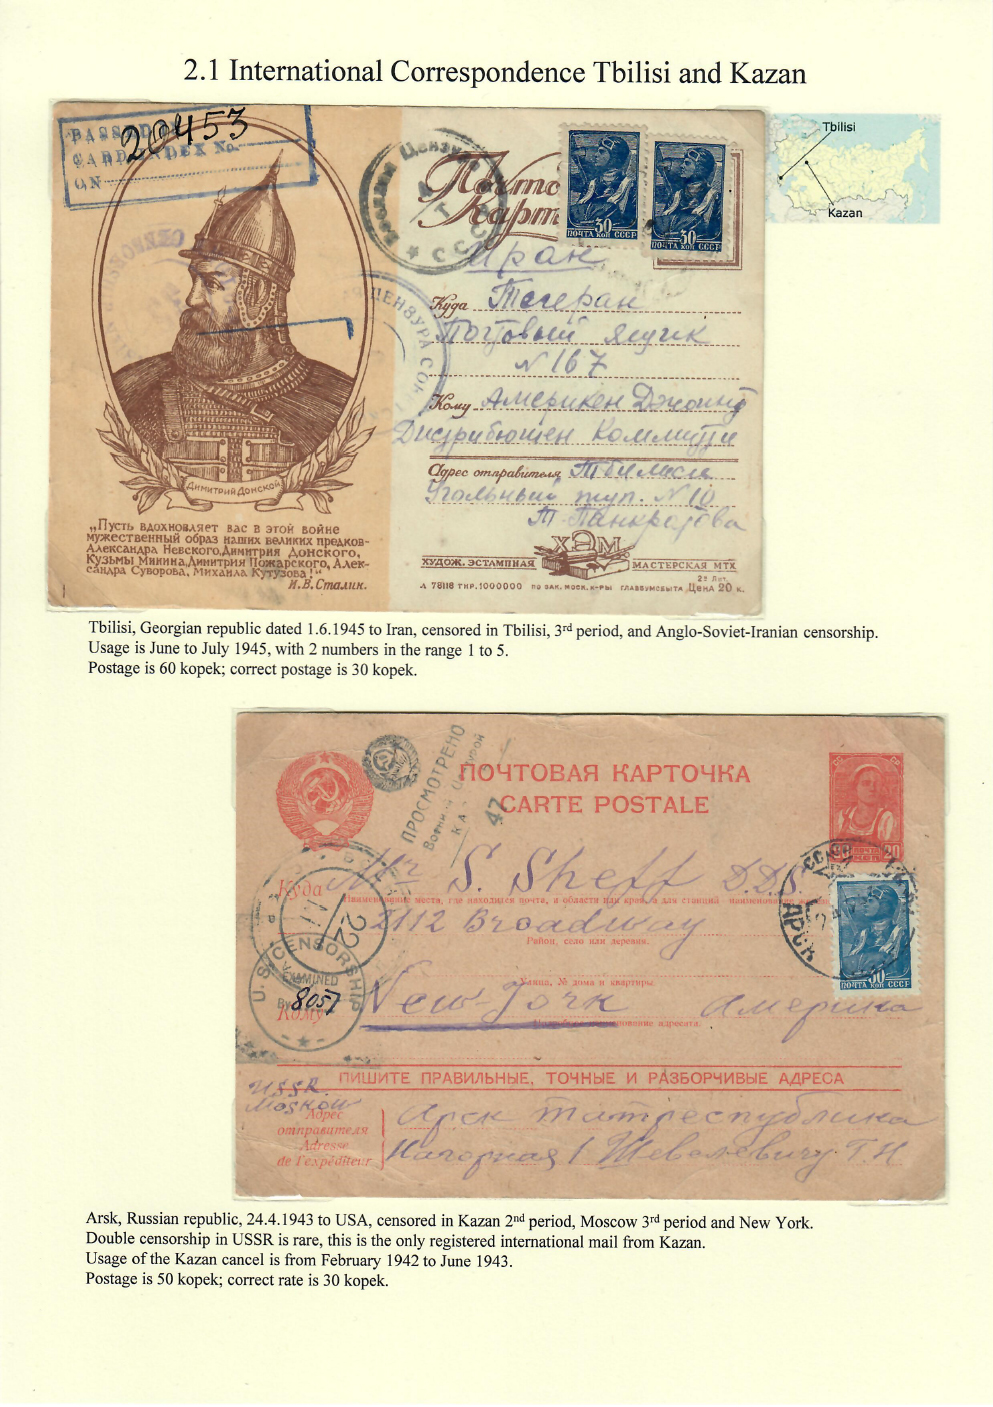 2.1 International Correspondence Tbilisi and Kazan
20453
PASSED
CARD INDEX No.
ON
Военная Цензура
СССР
Почто
Карт
30 30
ПОЧТА КОП СССР
ПОЧТА КОП СССР
Tbilisi
Kazan
Иран
ЦЕНЗУРА
Куда Тегеран
Почтовый ящик
N 167
Кому Американ Джоинт
Дистрибюшен Коммитти
Адрес отправителя Тбилиси
Угольный туп. N 10
Т. Панкратова
Димитрий Донской
„Пусть вдохновляет вас в этой войне
мужественный образ наших великих предков-
Александра Невского, Димитрия Донского,
Кузьмы Минина, Димитрия Пожарского, Алек-
сандра Суворова, Михаила Кутузова!"
И.В. Сталин.
ХЭМ
ХУДОЖ. ЭСТАМПНАЯ МАСТЕРСКАЯ МТХ
Л 78118 ТИР. 1000000 ПО ЗАК. МОСК. К-РЫ ГЛАВБУМСБЫТА Цена 20 к.
Tbilisi, Georgian republic dated 1.6.1945 to Iran, censored in Tbilisi, 3rd period, and Anglo-Soviet-Iranian censorship.
Usage is June to July 1945, with 2 numbers in the range 1 to 5.
Postage is 60 kopek; correct postage is 30 kopek.
ПРОСМОТРЕНО
Военной Цензурой
47
ПОЧТОВАЯ КАРТОЧКА
CARTE POSTALE
20
Куда Mr S. Sheff D.D.S.
Наименование места, где находится почта, и области или края, а для станций наименование
2112 Broadway
Район, село или деревня.
АРСК
22
U.S. CENSORSHIP
EXAMINED
By 8057
Улица, № дома и квартиры
Кому New-York Америка
наименование адресата.
30
ПОЧТА КОП СССР
ПИШИТЕ ПРАВИЛЬНЫЕ, ТОЧНЫЕ И РАЗБОРЧИВЫЕ АДРЕСА
USSR.
Moskow
Адрес
отправителя
Adresse
de l'expéditeur
Арск Татреспублика
Нагорная 1 Шевелевичу Г.Н
Arsk, Russian republic, 24.4.1943 to USA, censored in Kazan 2nd period, Moscow 3rd period and New York.
Double censorship in USSR is rare, this is the only registered international mail from Kazan.
Usage of the Kazan cancel is from February 1942 to June 1943.
Postage is 50 kopek; correct rate is 30 kopek.